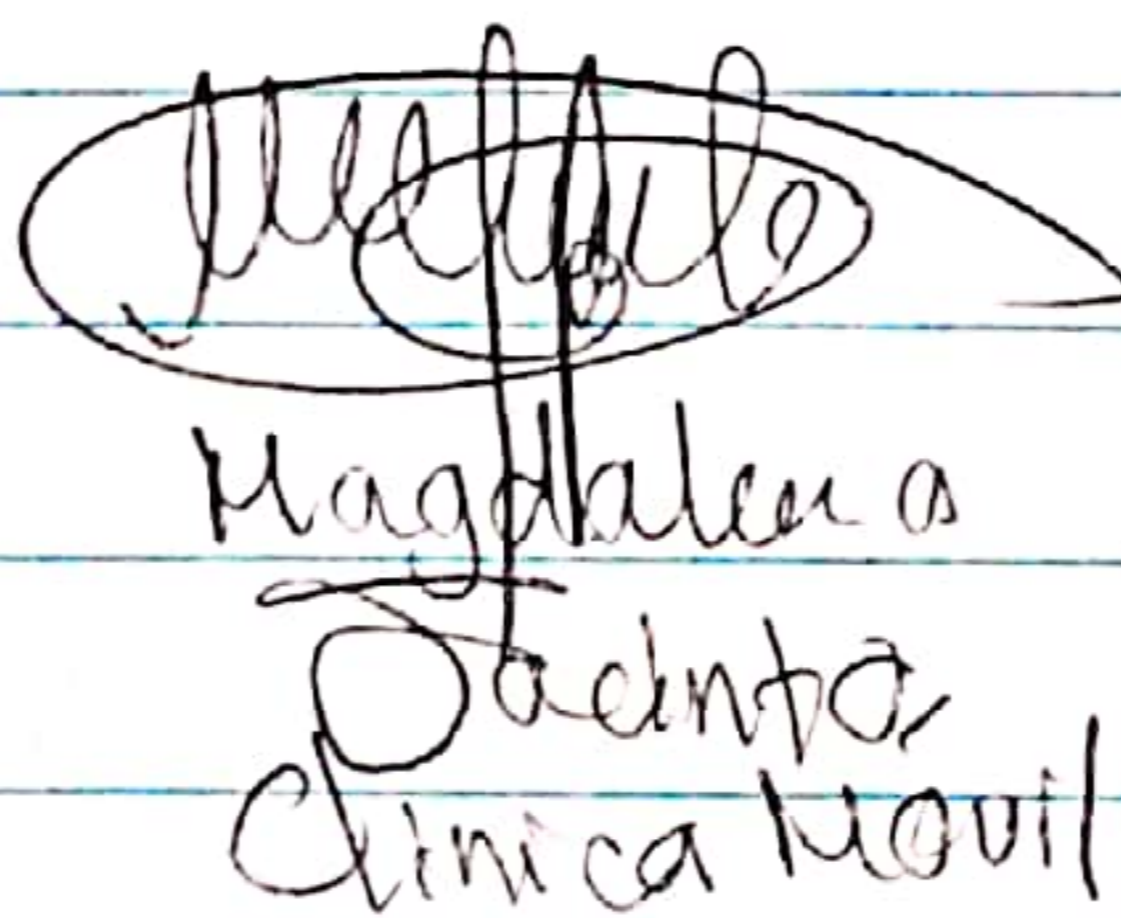 Magdalena
Jacinto,
Clinica Movil